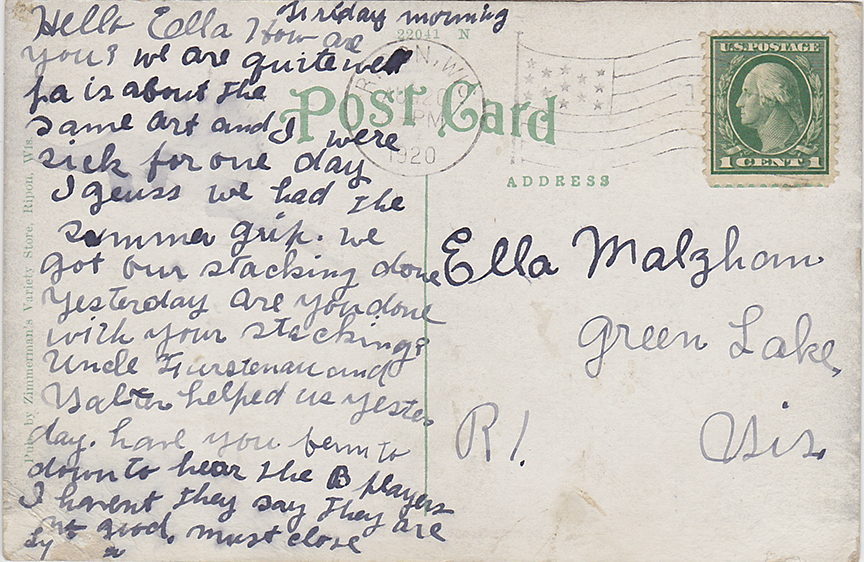 Friday morning
Hello Ella How are
you? we are quite well
pa is about the
same art and I were
sick for one day
I geuss we had the
summer grip. we
got our stacking done
yesterday are you done
with your stacking?
Uncle Furstenau and
Walter helped us yester
day. have you benn to
down to hear the B players
I havent they say they are
not good. must close
by
22041 N
Post Card
RIPON, WIS.
20
PM
1920
U.S. POSTAGE
1 CENT 1
ADDRESS
Ella Malzham
Green Lake,
R 1.
Wis
Pub. by Zimmerman's Variety Store, Ripon, Wis.